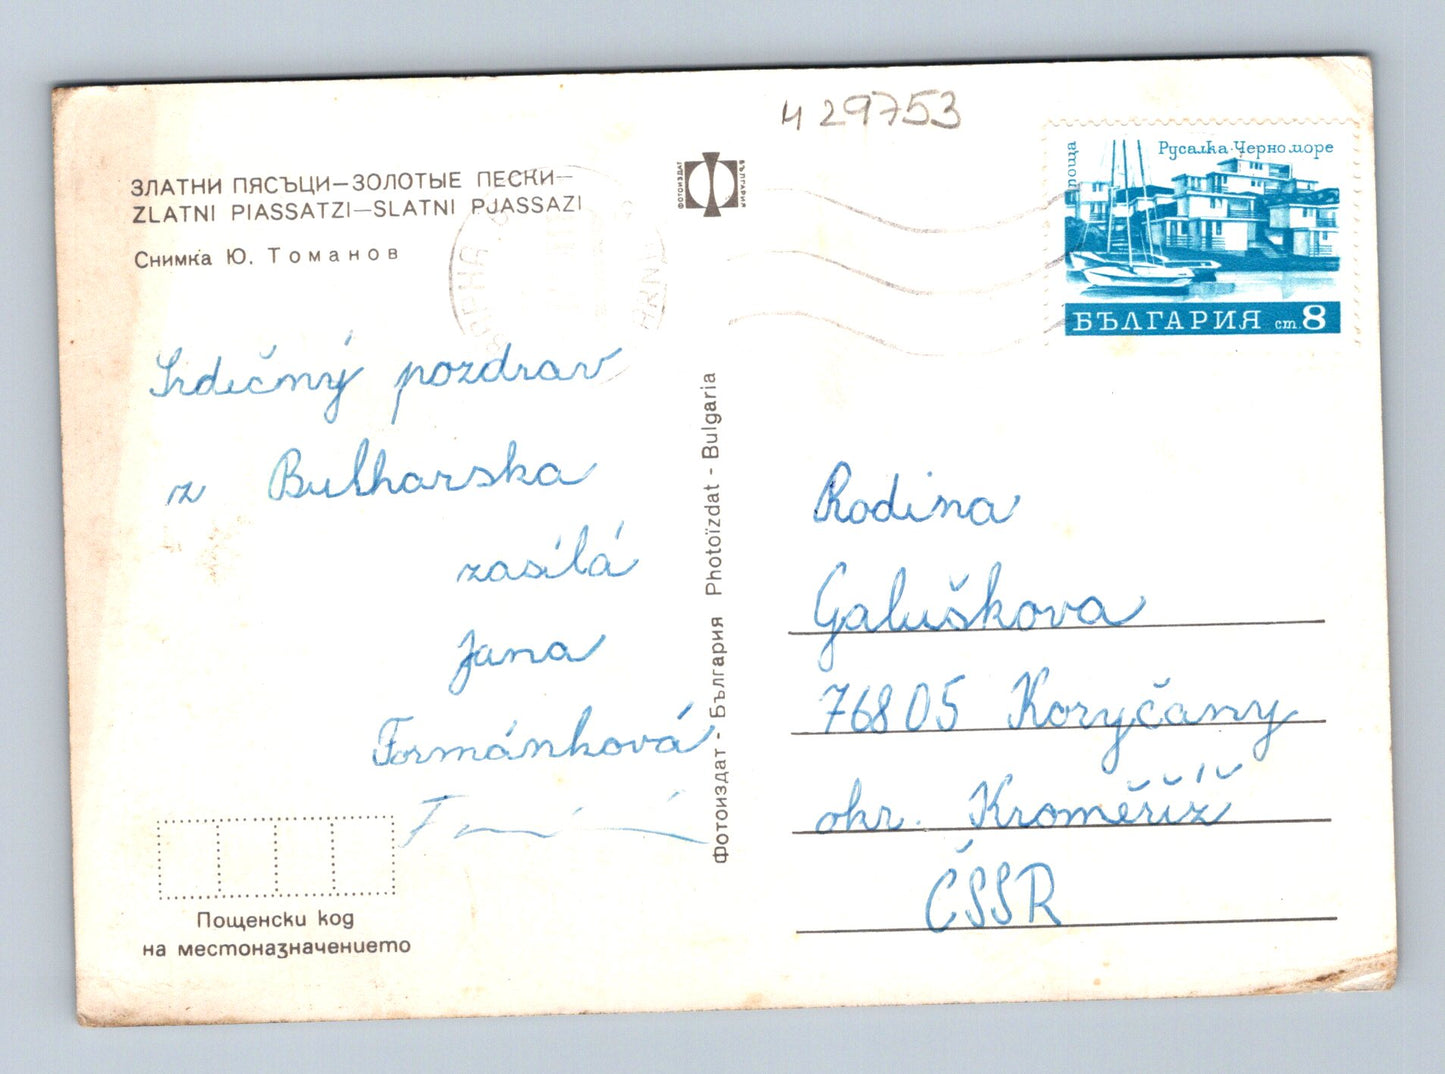 ч 29753
ЗЛАТНИ ПЯСЪЦИ—ЗОЛОТЫЕ ПЕСКИ—
ZLATNI PIASSATZI—SLATNI PJASSAZI
Снимка Ю. Томанов
Srdečný pozdrav
z Bulharska
zasílá
Jana
Formánková
Пощенски код
на местоназначението
Фотоиздат - България Photoïzdat - Bulgaria
ФОТОИЗДАТ
БЪЛГАРИЯ
Русалка·Черно море
БЪЛГАРИЯ ст. 8
Rodina
Galuškova
76805 Koryčany
okr. Kroměříž
ČSSR